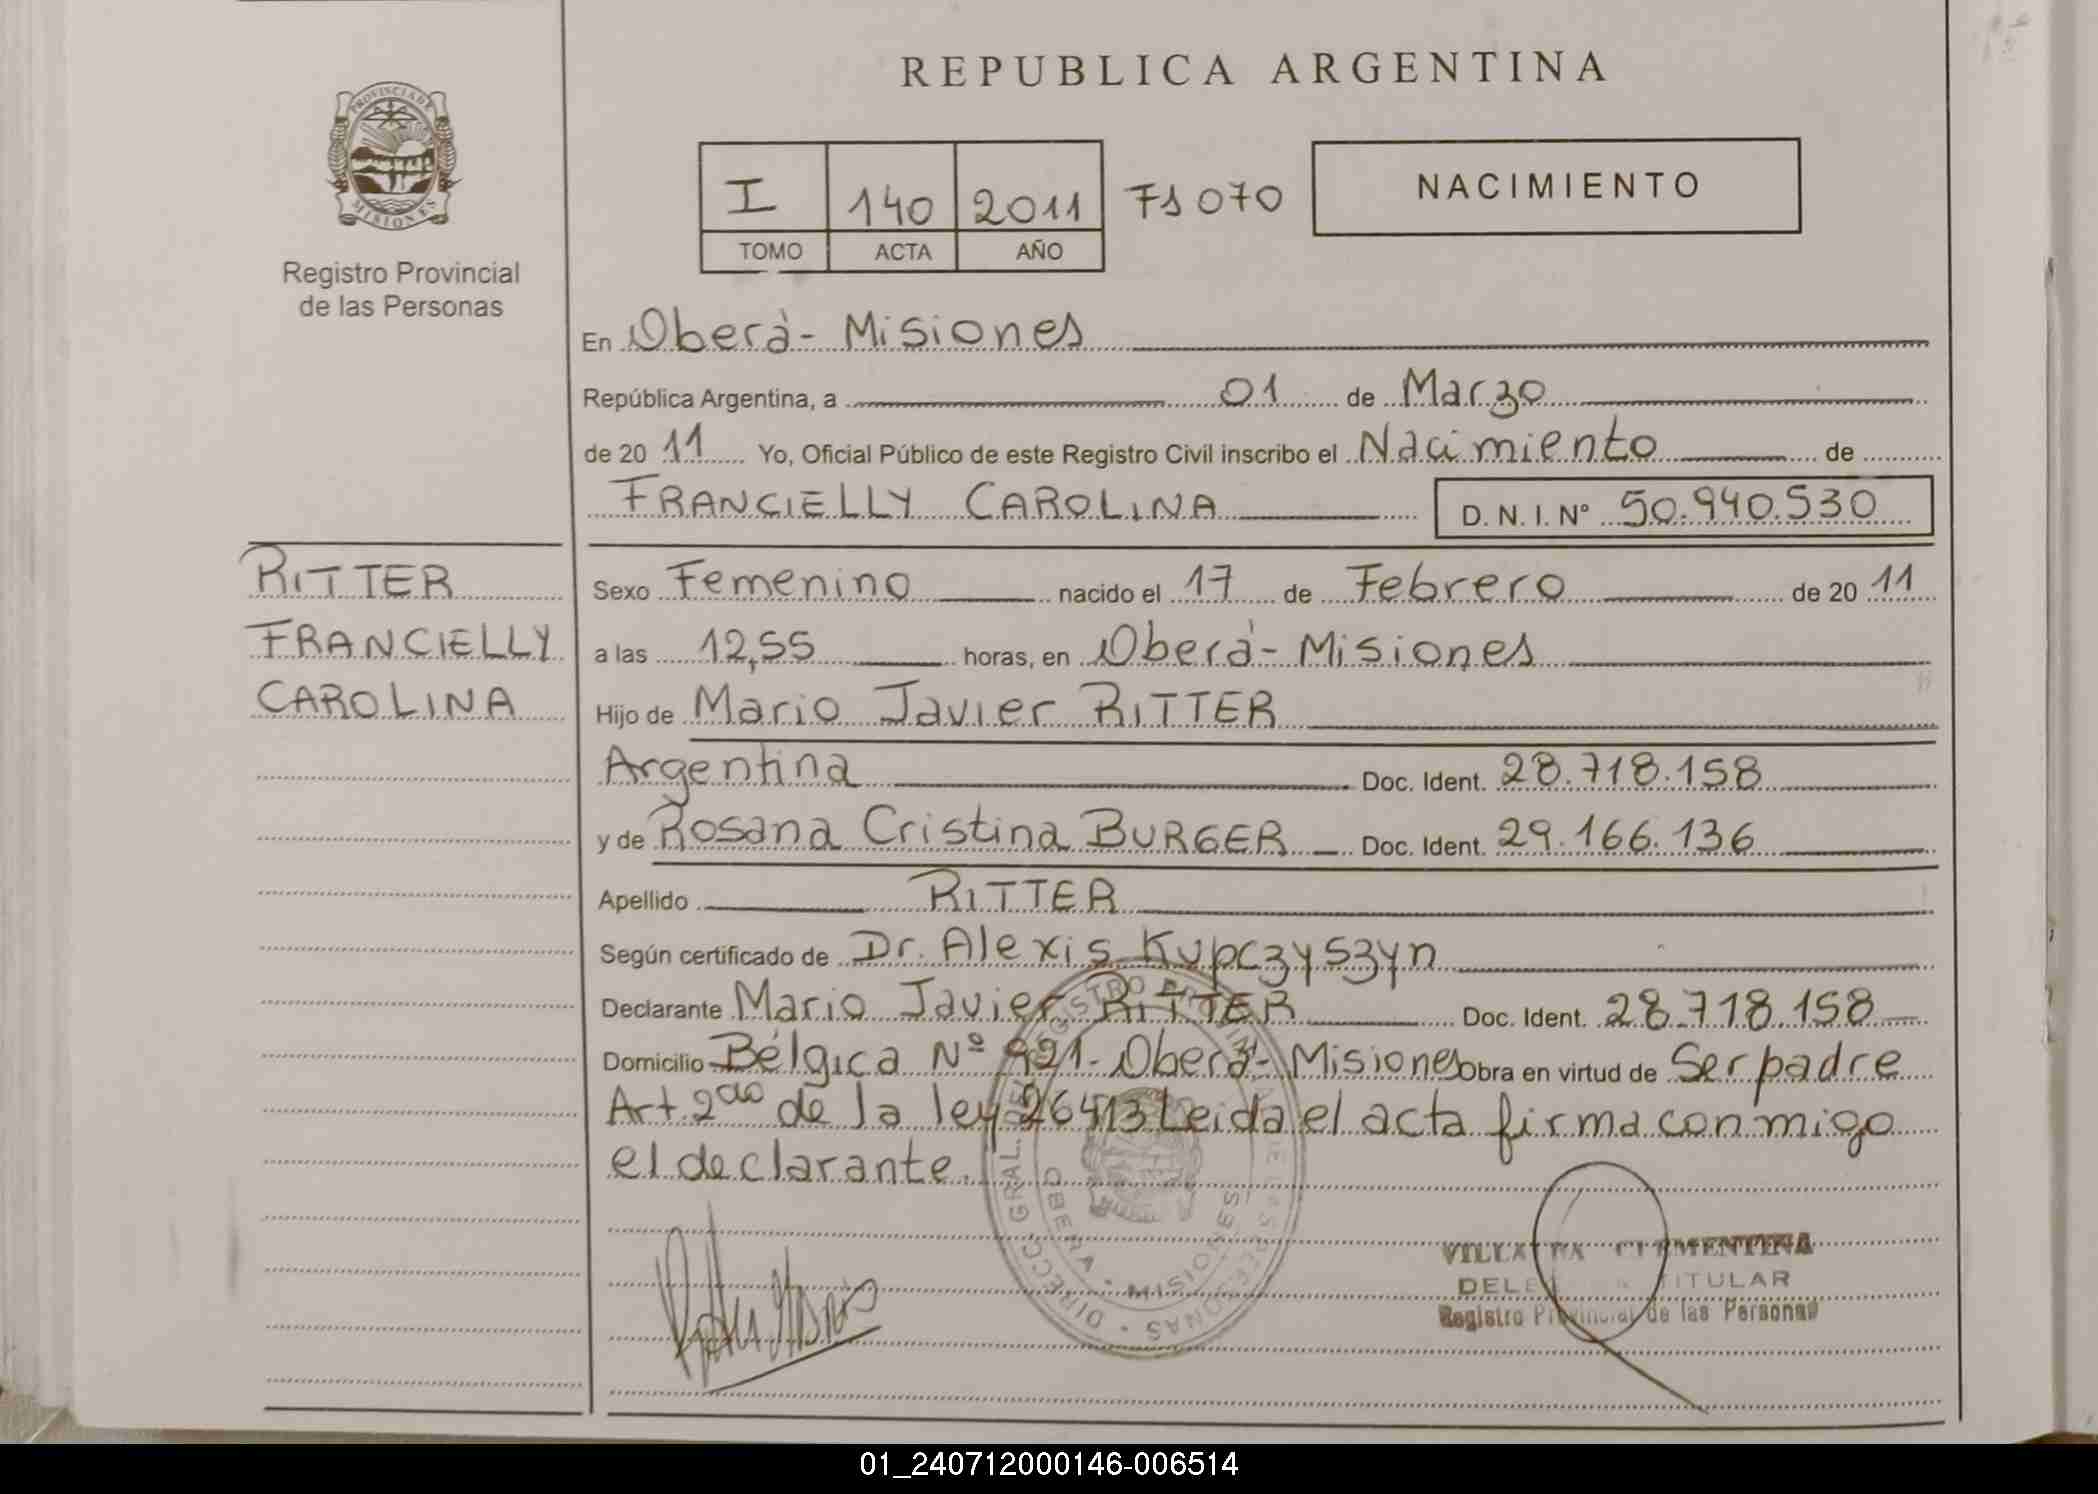 REPUBLICA ARGENTINA
PROVINCIA DE MISIONES
Registro Provincial
de las Personas
I 140 2011 Fs 070
TOMO ACTA AÑO
NACIMIENTO
En Oberá - Misiones
República Argentina, a 01 de Marzo
de 20 11 Yo, Oficial Público de este Registro Civil inscribo el Nacimiento de
FRANCIELLY CAROLINA D. N. I. Nº 50.940.530
RITTER
FRANCIELLY
CAROLINA
Sexo Femenino nacido el 17 de Febrero de 20 11
a las 12,55 horas, en Oberá - Misiones
Hijo de Mario Javier RITTER
Argentina Doc. Ident. 28.718.158
y de Rosana Cristina BURGER Doc. Ident. 29.166.136
Apellido RITTER
Según certificado de Dr. Alexis Kupczyszyn
Declarante Mario Javier RITTER Doc. Ident. 28.718.158
Domicilio Bélgica Nº 921 - Oberá - Misiones Obra en virtud de Ser padre
Art. 2do de la ley 26413 Leida el acta firma conmigo
el declarante.
DIRECC. GRAL. DEL REGISTRO DE LAS PERSONAS
OBERA - MISIONES
CLEMENTINA
TITULAR
Registro Provincial de las Personas
01_240712000146-006514